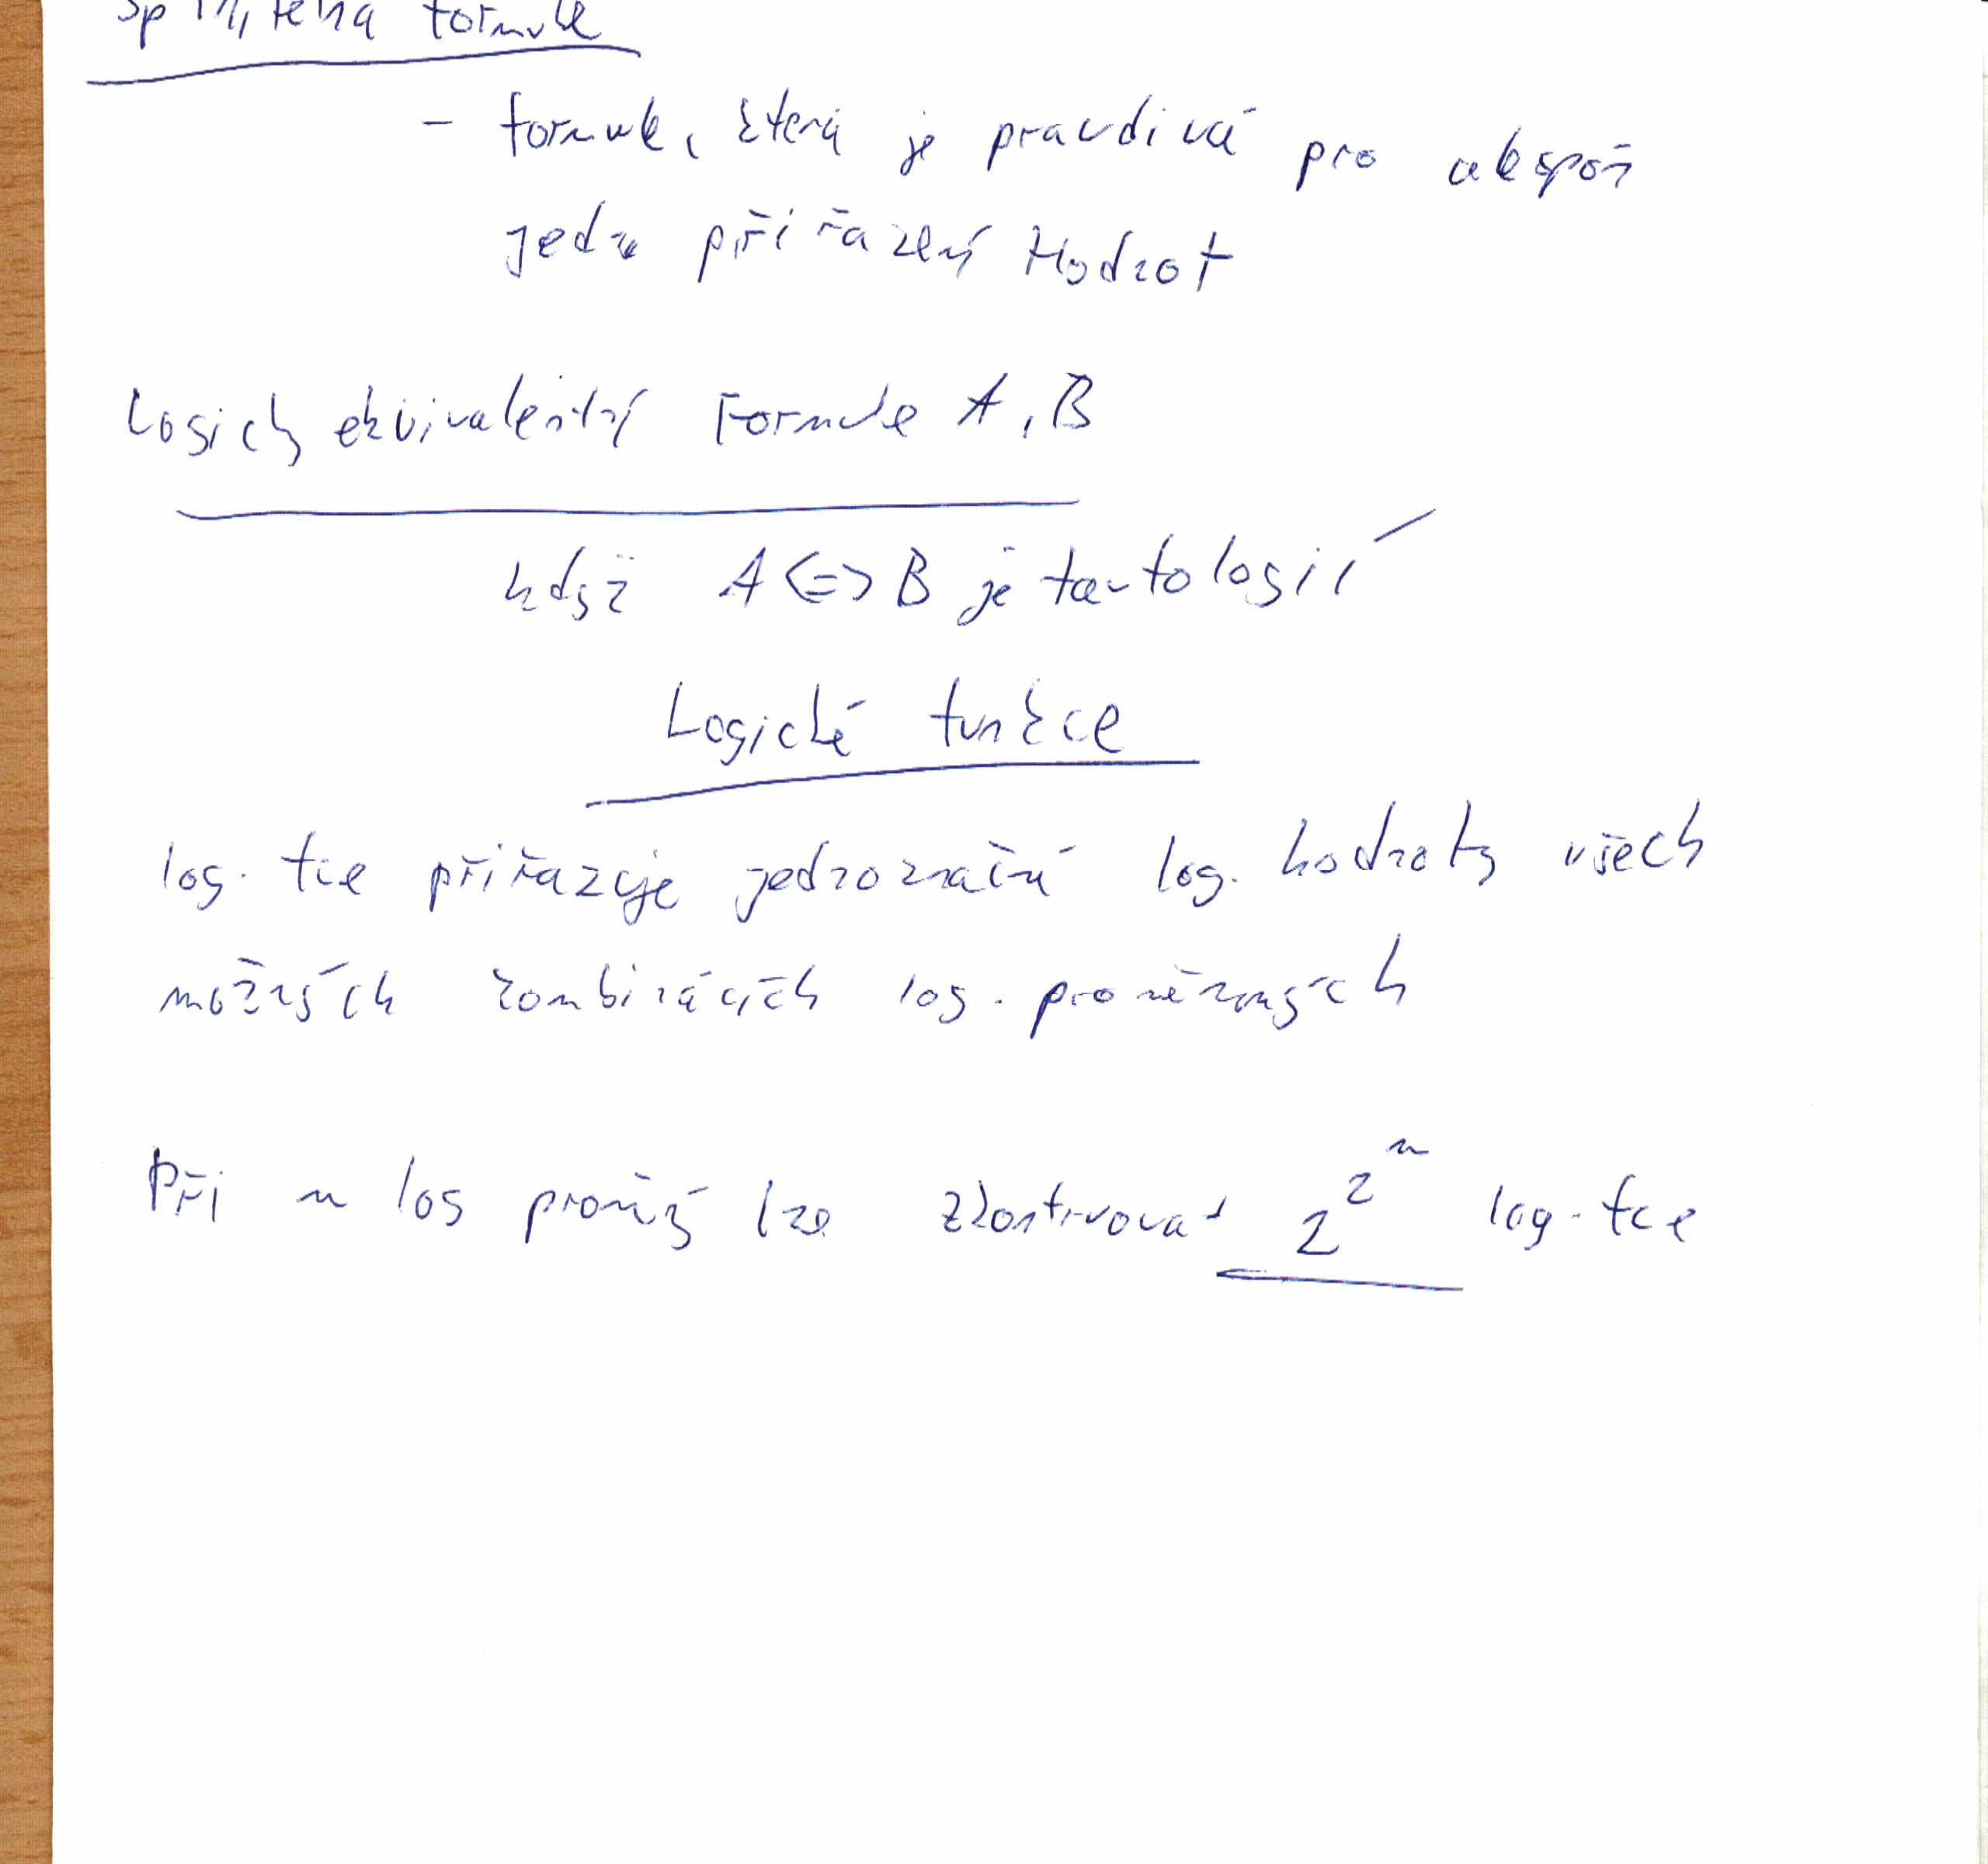 Splnitelná formule
- formule, která je pravdivá pro alespoň
jedno přiřazení Hodnot
Logicky ekvivalentní Formule A, B
když A <=> B je tautologií
Logické funkce
log. fce přiřazuje jednoznačná log. hodnoty všech
možných kombinácích log. proměnných
Při n log proměn lze zkonstruovat 2^2^n log. fce